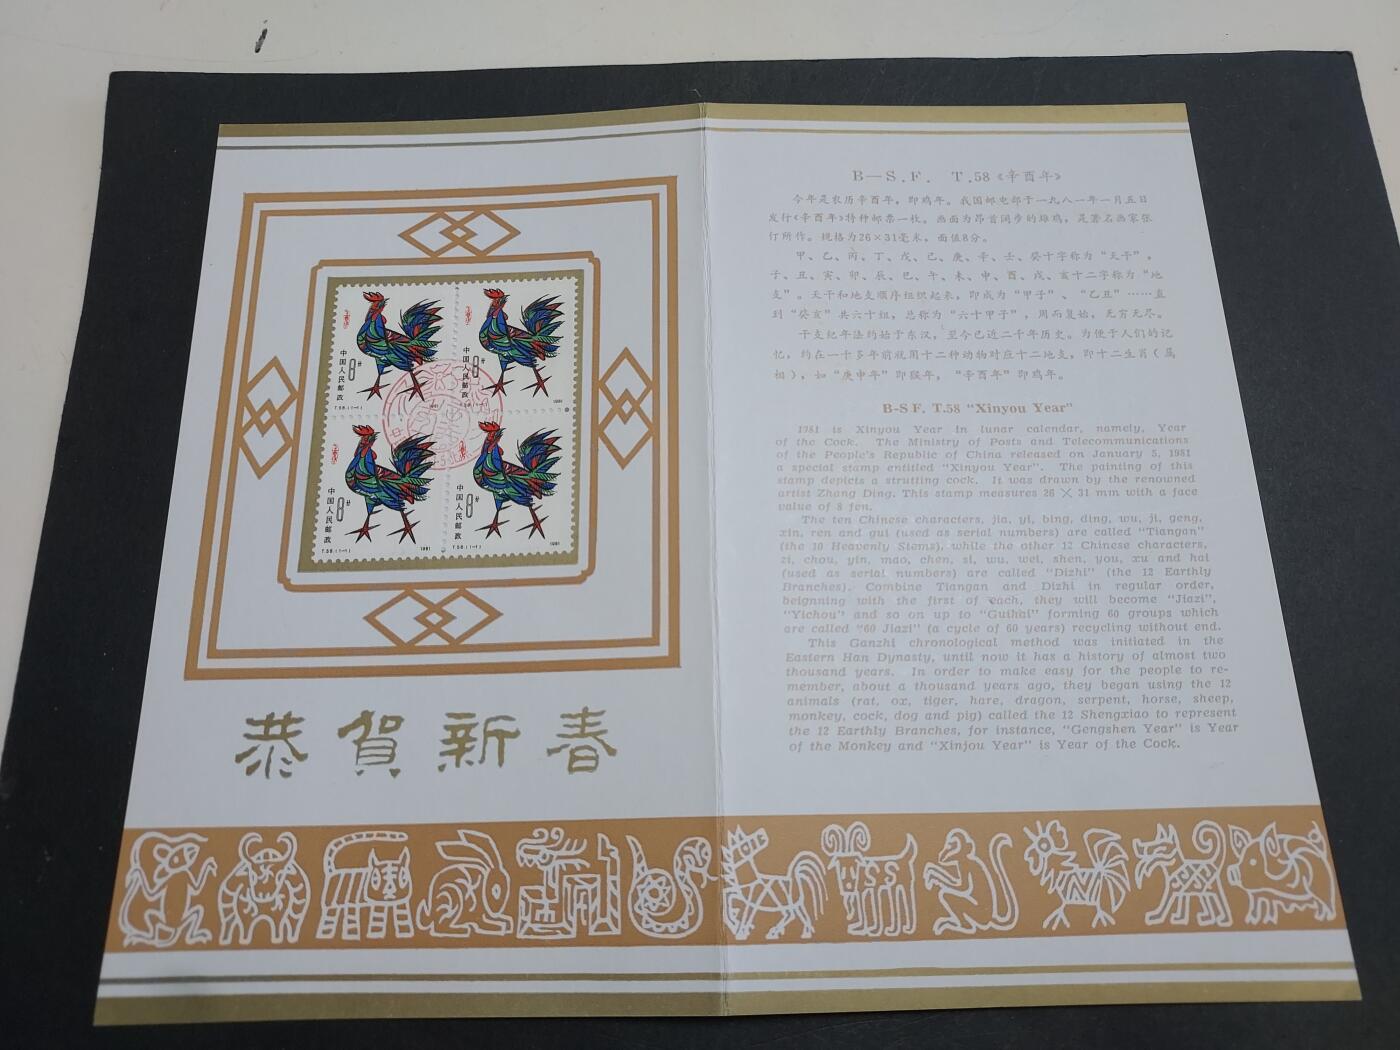 中国人民邮政
8分
T.58.(1—1)
1981
中国人民邮政
8分
T.58.(1—1)
1981
中国人民邮政
8分
T.58.(1—1)
1981
中国人民邮政
8分
T.58.(1—1)
1981
恭賀新春
B—S.F. T.58《辛酉年》
今年是农历辛酉年，即鸡年。我国邮电部于一九八一年一月五日
发行《辛酉年》特种邮票一枚。画面为昂首阔步的雄鸡，是著名画家张
仃所作。规格为26×31毫米，面值8分。
甲、乙、丙、丁、戊、己、庚、辛、壬、癸十字称为“天干”，
子、丑、寅、卯、辰、巳、午、未、申、酉、戌、亥十二字称为“地
支”。天干和地支顺序组织起来，即成为“甲子”、“乙丑”……直
到“癸亥”共六十组，总称为“六十甲子”，周而复始，无穷无尽。
干支纪年法约始于东汉，至今已近二千年历史。为便于人们的记
忆，约在一千多年前就用十二种动物对应十二地支，即十二生肖（属
相），如“庚申年”即猴年，“辛酉年”即鸡年。
B-S F. T.58 “Xinyou Year”
1981 is Xinyou Year in lunar calendar, namely, Year
of the Cock. The Ministry of Posts and Telecommunications
of the People's Republic of China released on January 5, 1981
a special stamp entitled “Xinyou Year”. The painting of this
stamp depicts a strutting cock. It was drawn by the renowned
artist Zhang Ding. This stamp measures 26 × 31 mm with a face
value of 8 fen.
The ten Chinese characters, jia, yi, bing, ding, wu, ji, geng,
xin, ren and gui (used as serial numbers) are called “Tiangan”
(the 10 Heavenly Stems), while the other 12 Chinese characters,
zi, chou, yin, mao, chen, si, wu, wei, shen, you, xu and hai
(used as serial numbers) are called “Dizhi” (the 12 Earthly
Branches). Combine Tiangan and Dizhi in regular order,
beignning with the first of each, they will become “Jiazi”,
“Yichou” and so on up to “Guihai” forming 60 groups which
are called “60 Jiazi” (a cycle of 60 years) recycling without end.
This Ganzhi chronological method was initiated in the
Eastern Han Dynasty, until now it has a history of almost two
thousand years. In order to make easy for the people to re-
member, about a thousand years ago, they began using the 12
animals (rat, ox, tiger, hare, dragon, serpent, horse, sheep,
monkey, cock, dog and pig) called the 12 Shengxiao to represent
the 12 Earthly Branches, for instance, “Gengshen Year” is Year
of the Monkey and “Xinjou Year” is Year of the Cock.